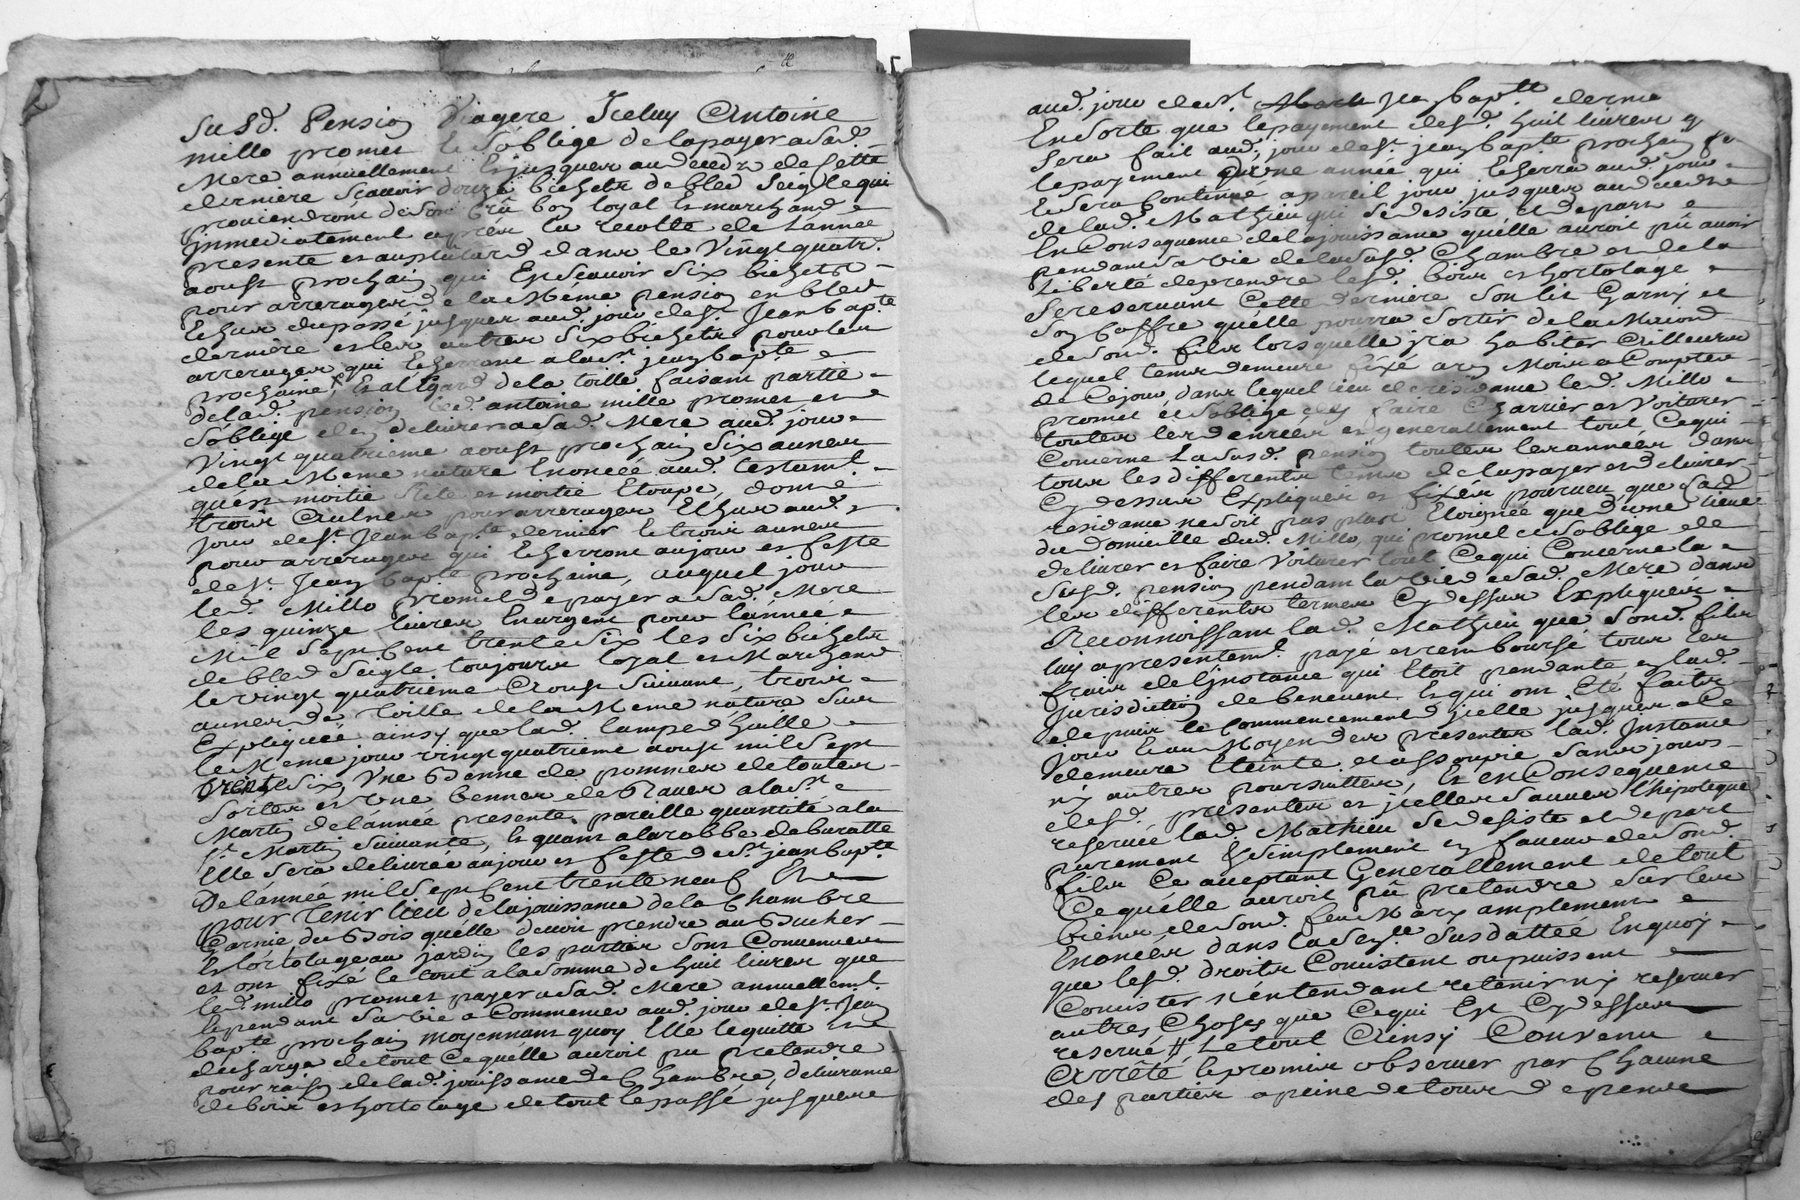 susd. Pension Viagere Iceluy Antoine
millo promet et s'oblige de la payer a sad.
Mere annuellement et jusques au deceds de cette
derniere scavoir douze bichets de bled seigle qui
proviendront de son crû bon loyal et marchand
immediatement apres la recolte de l'année
presente et au plutard dans le Vingt quatre
aoust prochain qui En scavoir six bichets
pour arrerages de la Même pension en bled
Echus du passé jusques aud. jour de st. Jean bapte
derniere et les autres six bichets pour les
arrerages qui Echerront a la st. jean bapte
prochaine, Et al Egard de la toille faisant partie
de lad. pension led. antoine mille promet et
s'oblige de delivrer a sad. Mere aud. jour
Vingt quatrieme aoust prochain six aunes
de la Meme nature Enoncée aud. testamt.
quest moitié file et moitié Etoupe, donné
trois Aulnes pour arrerages Echus aud.
jour de st. Jean bapte dernier Et trois aunes
pour arrerages qui Echerront au jour et feste
de st. Jean bapte prochaine, auquel jour
led. Millo promet de payer a sad. Mere
les quinze livres En argent pour l'année
Mil sept cent trente six les six bichets
de bled seigle toujours loyal et Marchand
le vingt quatrieme Aoust suivant, trois
aunes de toille de la Meme nature sus
Expliquée ainsy que lad. lampe d'huille
le Meme jour vingt quatrieme aoust mil sept
trente six, Une benne de pommes de toutes
sortes et une benne de Raves a la st.
Martin de l'année presente, pareille quantité a la
st. Martin suivante, Et quant a la robbe de buratte
Elle sera delivrée au jour et feste de st. jean bapte
De l'année mil sept cent trente neuf Et
pour tenir lieu de la jouissance de la Chambre
Garnie du Bois quelle devoit prendre au Bucher
Et l'ortolage au jardin les parties sont Convenues
et ont fixé le tout a la somme de huit livres que
led. millo promet payer a sad. Mere annuellemt.
Et pendant sa vie a Commencer aud. jour de st. Jean
bapte prochain moyennant quoy Elle le quitte
decharge de tout Ce quelle auroit pu pretendre
pour raison de lad. jouissance de Chambre, delivrance
de bois et hortolage de tout le passé jusques
aud. jour de st. Jean bapte dernie
En sorte que le payement desd. huit livres
sera fait aud. jour de st. jean bapte prochain
le payement d'une année qui Echerra aud. jour
Et sera Continué a pareil jour jusques au deceds
de lad. Mathieu qui se desiste et depart
En Consequence de la jouissance quelle auroit pû avoir
pendant sa vie de la susd. Chambre et de la
liberté de prendre lesd. bois et hortolage
se reservant Cette derniere son lit Garny et
son Coffre quelle pourra sortir de la Maison
de sond. fils lorsquelle ira habiter Ailleurs
lequel tems demeure fixé a Mois a Compter
de Ce jour, dans lequel lieu de residance led. Millo
promet et s'oblige de faire Charrier et Voiturer
toutes les denrées et generallement tout Ce qui
Concerne La susd. pension toutes les années dans
tous les differents tems de la payer et delivrer
Cy dessus Expliqués et fixés pourveu que sad.
residance ne soit pas plus Eloignée que d'une lieue
du domicille dud. Millo, qui promet et s'oblige de
delivrer et faire Voiturer tout Ce qui Concerne la
susd. pension pendant la vie de sad. Mere dans
les differents termes Cy dessus Expliqués
Reconnoissant lad. Mathieu que sond. fils
luy a presentemt. payé et remboursé tous les
frais de l'instance qui Etoit pendante en lad.
Jurisdiction de benevent Et qui ont Eté faits
depuis le Commencement d'icelle jusques a Ce
jour Et au Moyen des presentes lad. Instance
demeure Eteinte et assoupie sans jours
ny autres poursuittes, Et en Consequence
desd. presentes et icelles sauves l'hipoteque
reservée lad. Mathieu se desiste et depart
purement Et simplement en faveur de sond.
fils Ce acceptant Generallement de tout
Ce quelle auroit pû pretendre sur les
biens de sond. feu Mary amplement
Enoncés dans la Susdattée En quoy
que lesd. droits Consistent ou puissent
Consister n'entendant retenir ny reserver
autres Choses que Ce qui Est Cy dessus
reservé # Le tout Ainsy Convenu
Arrêté Et promis observer par Chacune
des parties a peine de tous depens